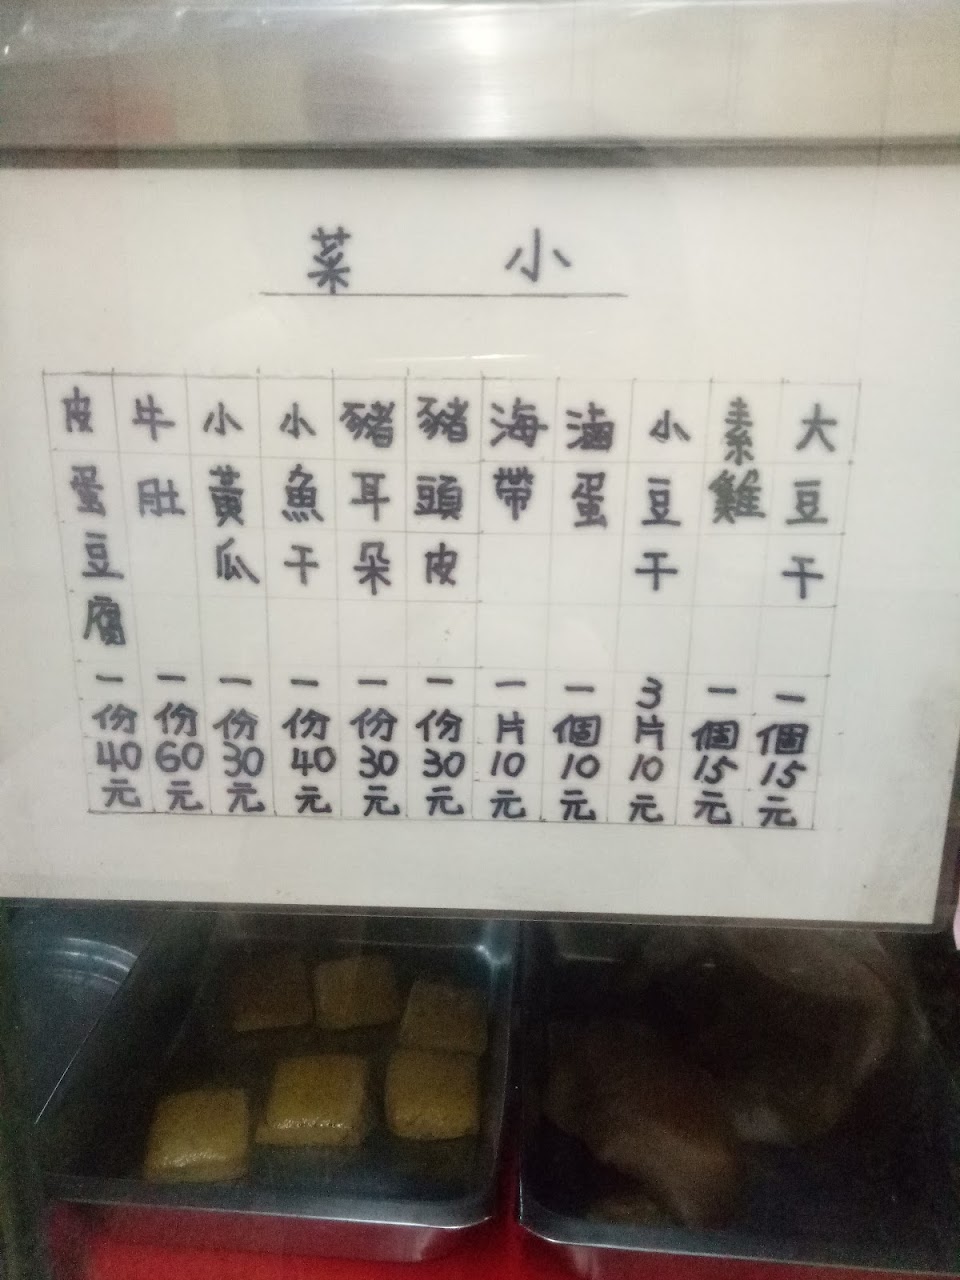 小菜
大豆干一個15元
素雞一個15元
小豆干3片10元
滷蛋一個10元
海帶一片10元
豬頭皮一份30元
豬耳朵一份30元
小魚干一份40元
小黃瓜一份30元
牛肚一份60元
皮蛋豆腐一份40元